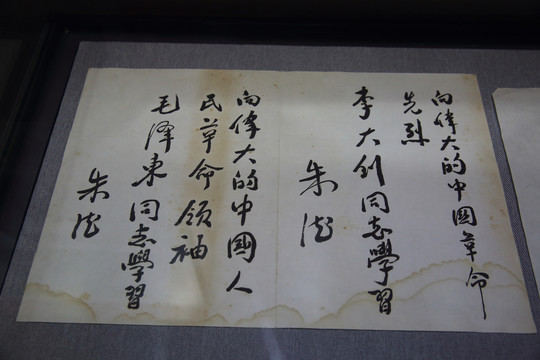 向偉大的中國革命
先烈
李大钊同志學習
朱德
向偉大的中國人
民革命领袖
毛泽東同志學習
朱德